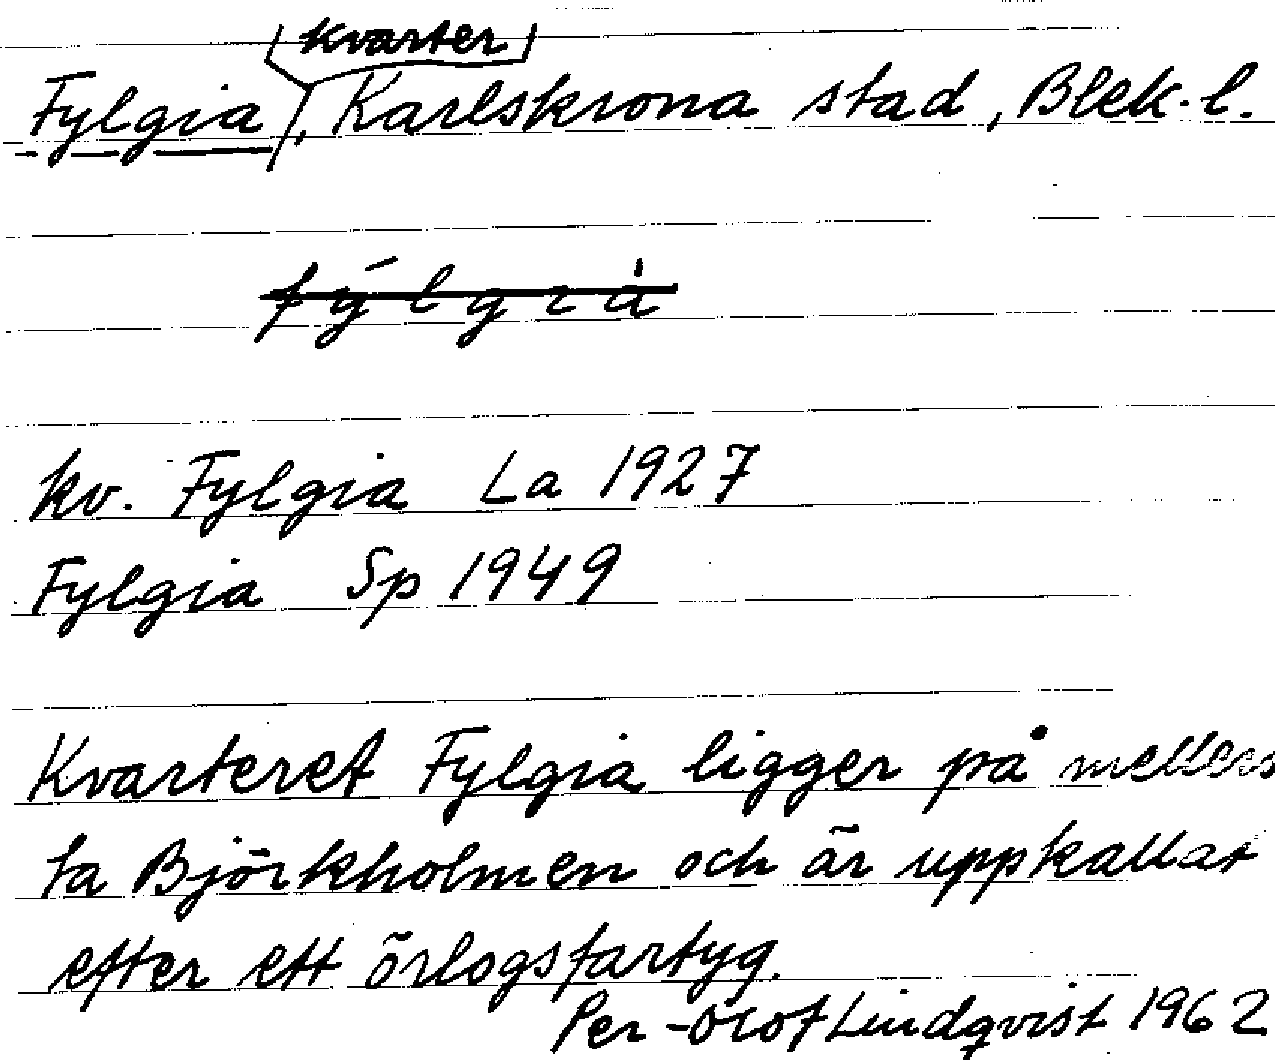 kvarter
Fylgia, Karlskrona stad, Blek. l.
fýlgià
kv. Fylgia La 1927
Fylgia Sp 1949
Kvarteret Fylgia ligger på mellers
ta Björkholmen och är uppkallat
efter ett örlogsfartyg.
Per-Olof Lindqvist 1962